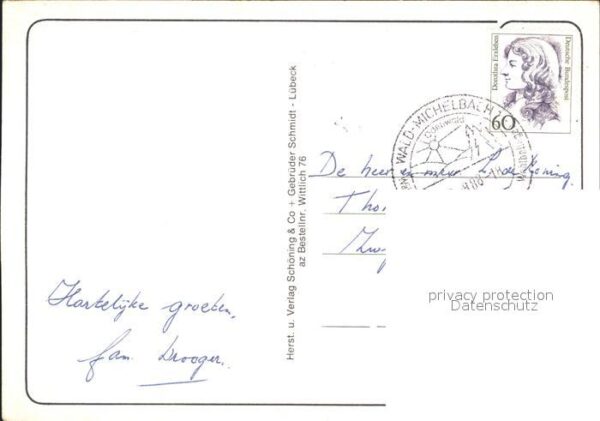 Dorothea Erxleben
Deutsche Bundespost
60
WALD-MICHELBACH 1
Odenwald
De heer en mevr.
Tho
Zw
privacy protection
Datenschutz
Hartelijke groeten,
fam. Drooger.
Herst. u. Verlag Schöning & Co + Gebrüder Schmidt - Lübeck
az Bestellnr. Wittlich 76